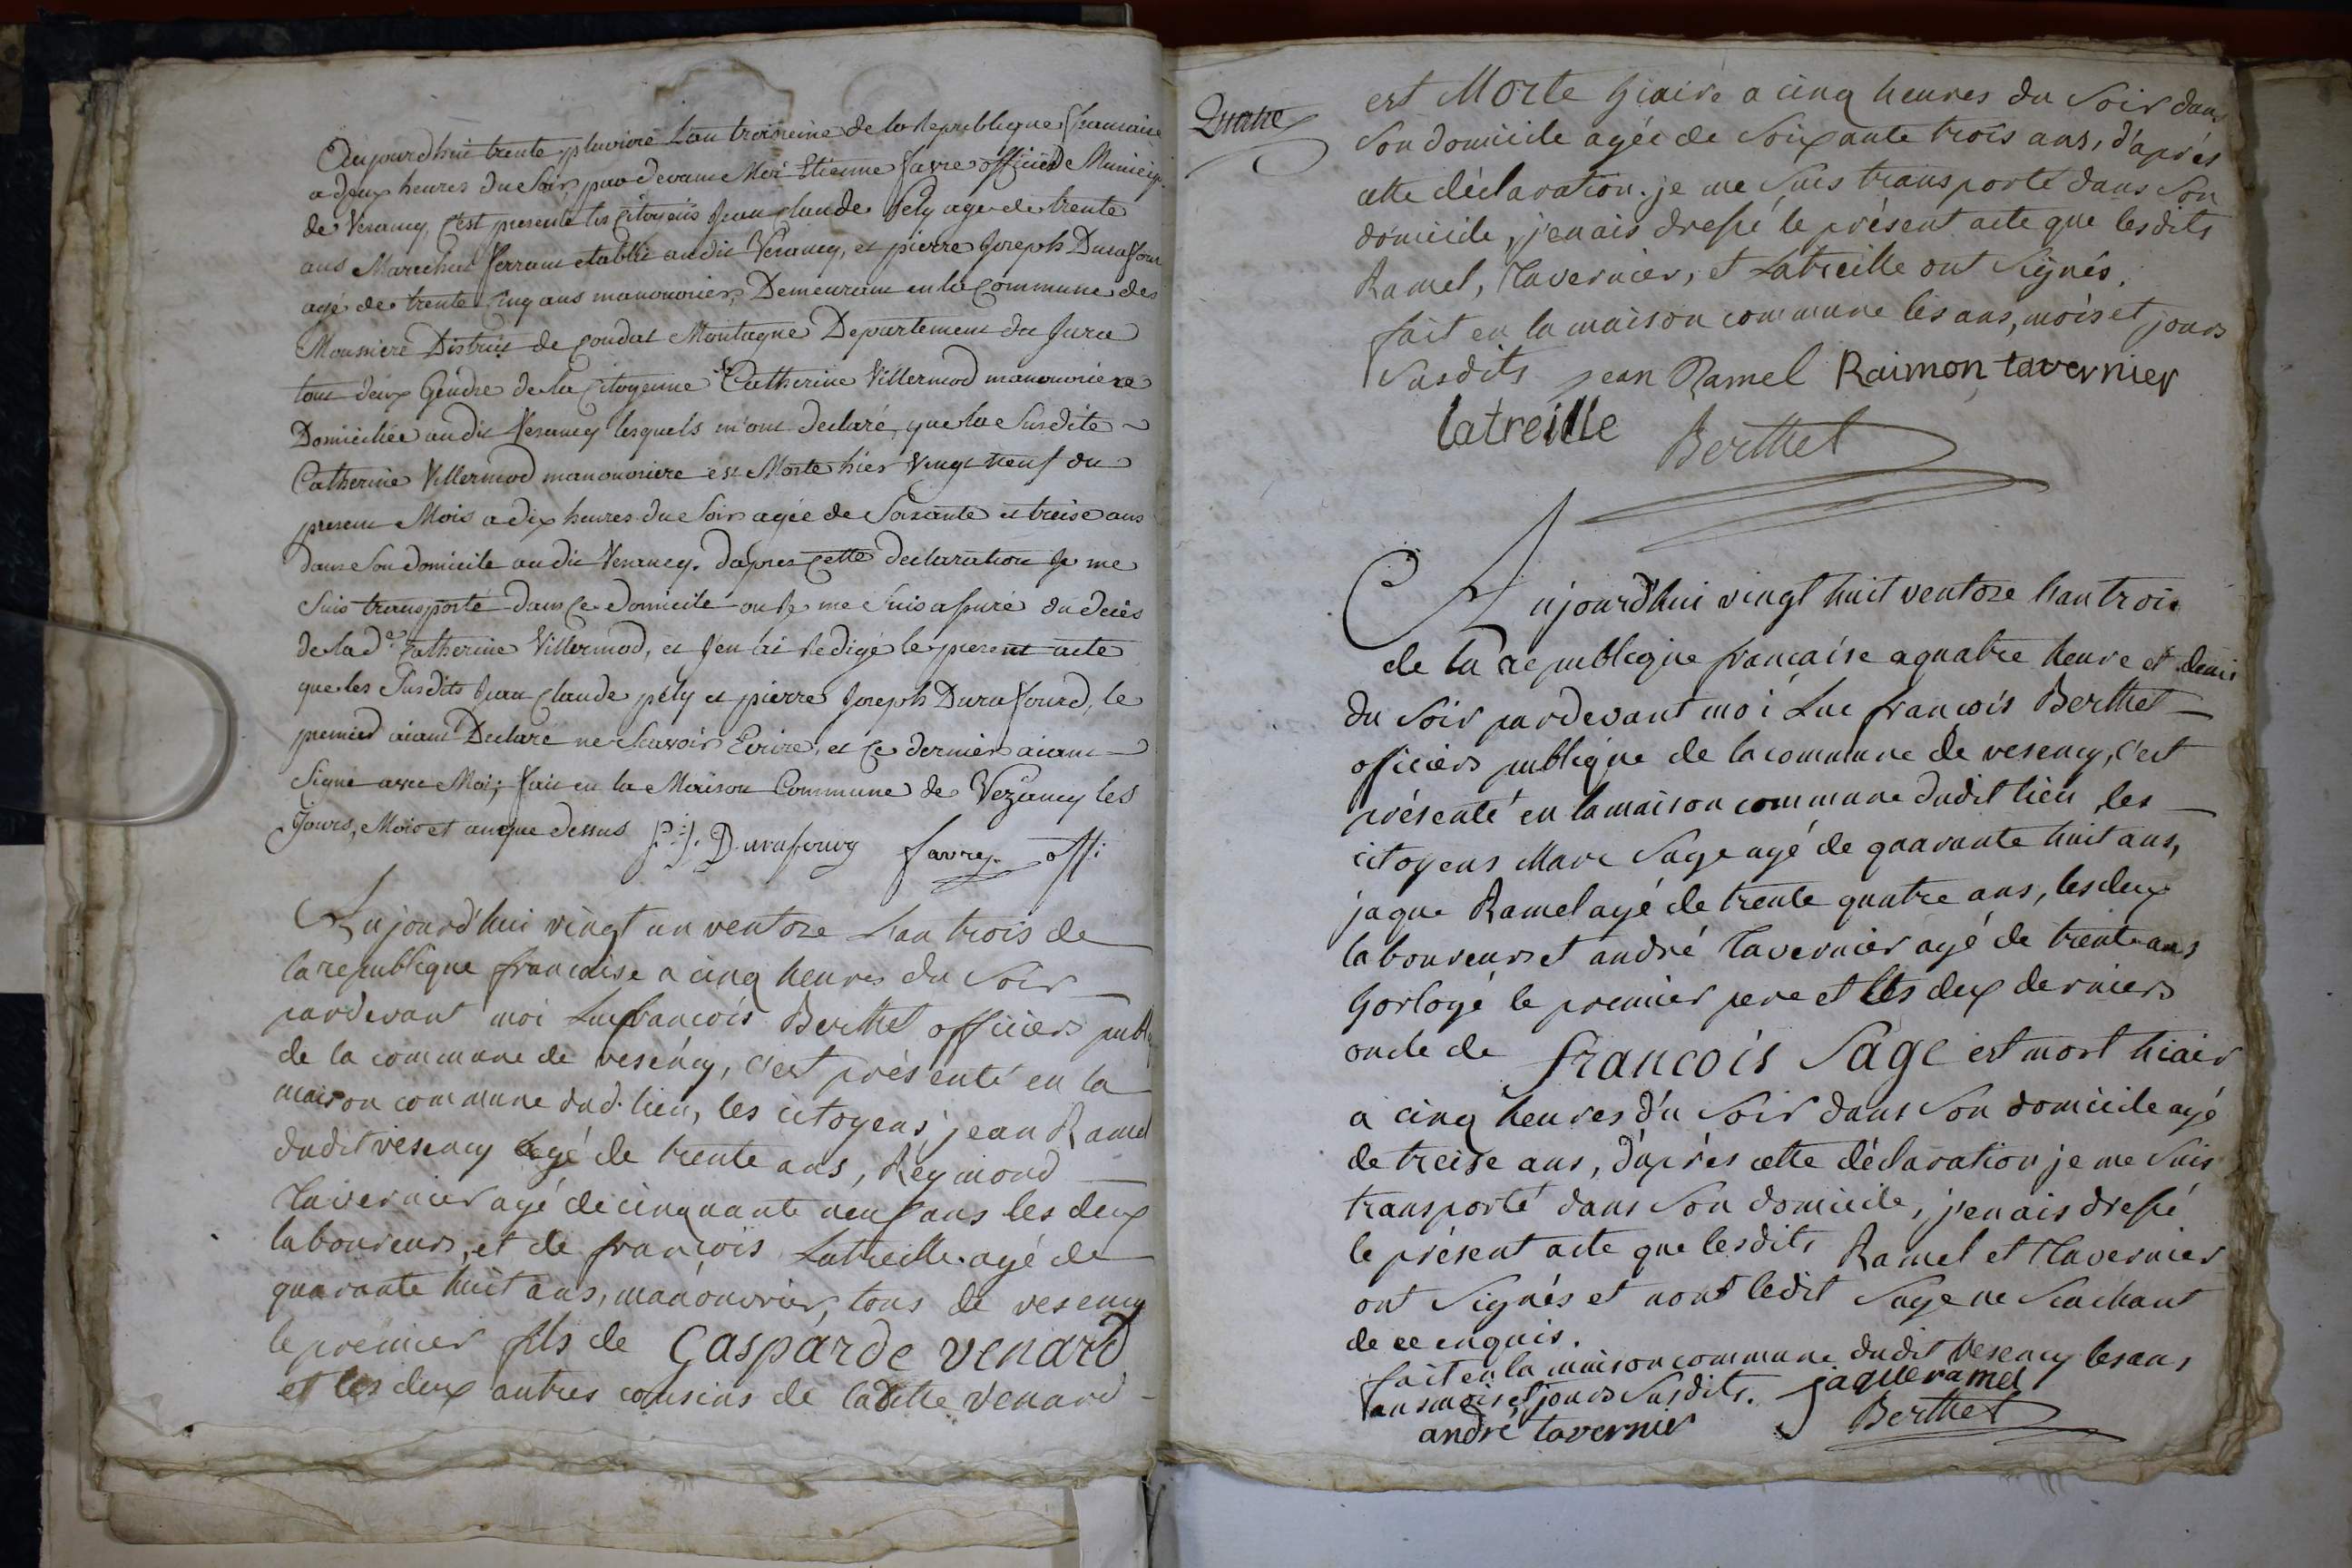 Aujourdhui trente pluviore L'an troisieme de la Republique francaise
a deux heures du Soir, par devant Moi Etienne favre officier Municip.
de Vesancy, C'est presenté les Citoyens Jean Claude Pely age de trente
ans Marechal ferrant etablit audit Vesancy, et pierre Joseph Durafour
agé de trente Cinq ans manouvrier, Demeurant en la Commune des
Moussiere District de Condat Montagne Departement du Jura
tout deux Gendre de la Citoyenne Catherine Villermod manouvriere
Domiciliée audit Vesancy lesquels m'ont declaré, que la Susdite
Catherine Villermod manouvriere est Morte hier Vingt neuf du
present Mois a dix heures du Soir agée de Soixante et treise ans
dans Son domicile au dit Vesancy. d'apres Cette declaration Je me
Suis transporté dans Ce domicile ou Je me Suis assuré du décès
de lad.e Catherine Villermod, et J'en ai Redigé le present acte
que les Susdits Jean Claude pely et pierre Joseph Durafourd, le
premier aiant Declaré ne Scavoir Ecrire, et Ce dernier aiant
Signé avec Moi; fait en la Maison Commune de Vezancy les
Jours, Mois et an que dessus P:J. Durafourg favre. offi:
Aujourd'hui vingt un ventose Lan trois de
la republique francaise a cinq heures du Soir
pardevant moi Luc francois Berthet officiers publiq
de la commune de vesency, c'est présenté en la
maison commune dud. lieu, les citoyens jean Ramel
dudit vesency agé de trente ans, Reymond
Tavernier agé de cinquante neuf ans les deux
laboureurs, et de francois Latreille agé de
quarante huit ans, manouvrier, tous de vesency
le premier fils de Gasparde venard
et les deux autres cousins de ladite venard
Quatre
est Morte hiaire a cinq heures du Soir dans
Son domicile agée de Soixante trois ans, d'aprés
cette déclaration. je me Suis transporté dans Son
domicile, j'enais dressé le présent acte que lesdits
Ramel, Tavernier, et Latreille ont Signés.
fait en la maison commune les ans, mois et jours
Susdits jean Ramel Raimon tavernier
latreille Berthet
Aujourd'hui vingt huit ventose Lan trois
de la republique francaise a quatre heure et demis
du Soir pardevant moi Luc francois Berthet
officiers publique de la commune de vesency, c'est
présenté en la maison commune dudit lieu les
citoyens Marc Sage agé de quarante huit ans,
jaque Ramel agé de trente quatre ans, les deux
laboureurs et andré Tavernier agé de trente ans
horlogé le premier pere et les deux derniers
oncle de francois Sage est mort hiair
a cinq heures du Soir dans Son domicile agé
de treise ans, d'aprés cette déclaration je me Suis
transporté dans Son domicile, j'enais dressé
le présent acte que lesdits Ramel et Tavernier
ont Signés et nont ledit Sage ne Scachant
de ce enquis.
fait en la maison commune dudit Vesency les ans
ans mois et jours Susdits. jaque ramel
andré tavernier Berthet